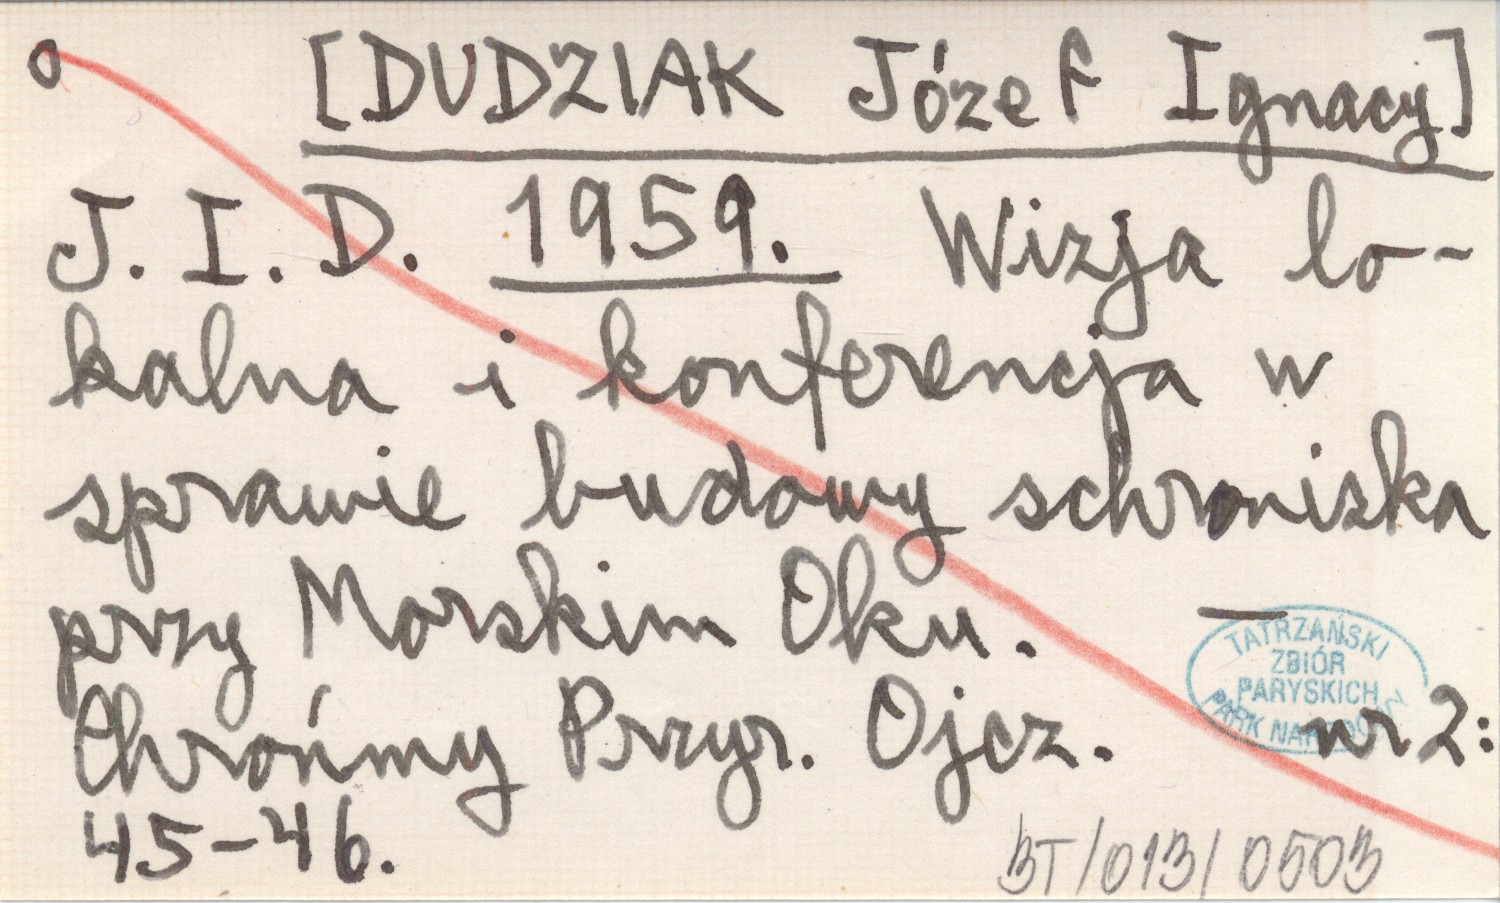 [DUDZIAK Józef Ignacy]
J. I. D. 1959. Wizja lo-
kalna i konferencja w
sprawie budowy schroniska
przy Morskim Oku. —
TATRZAŃSKI
ZBIÓR
PARYSKICH
PARK
Chrońmy Przyr. Ojcz. nr 2:
45-46.
BT/013/0503